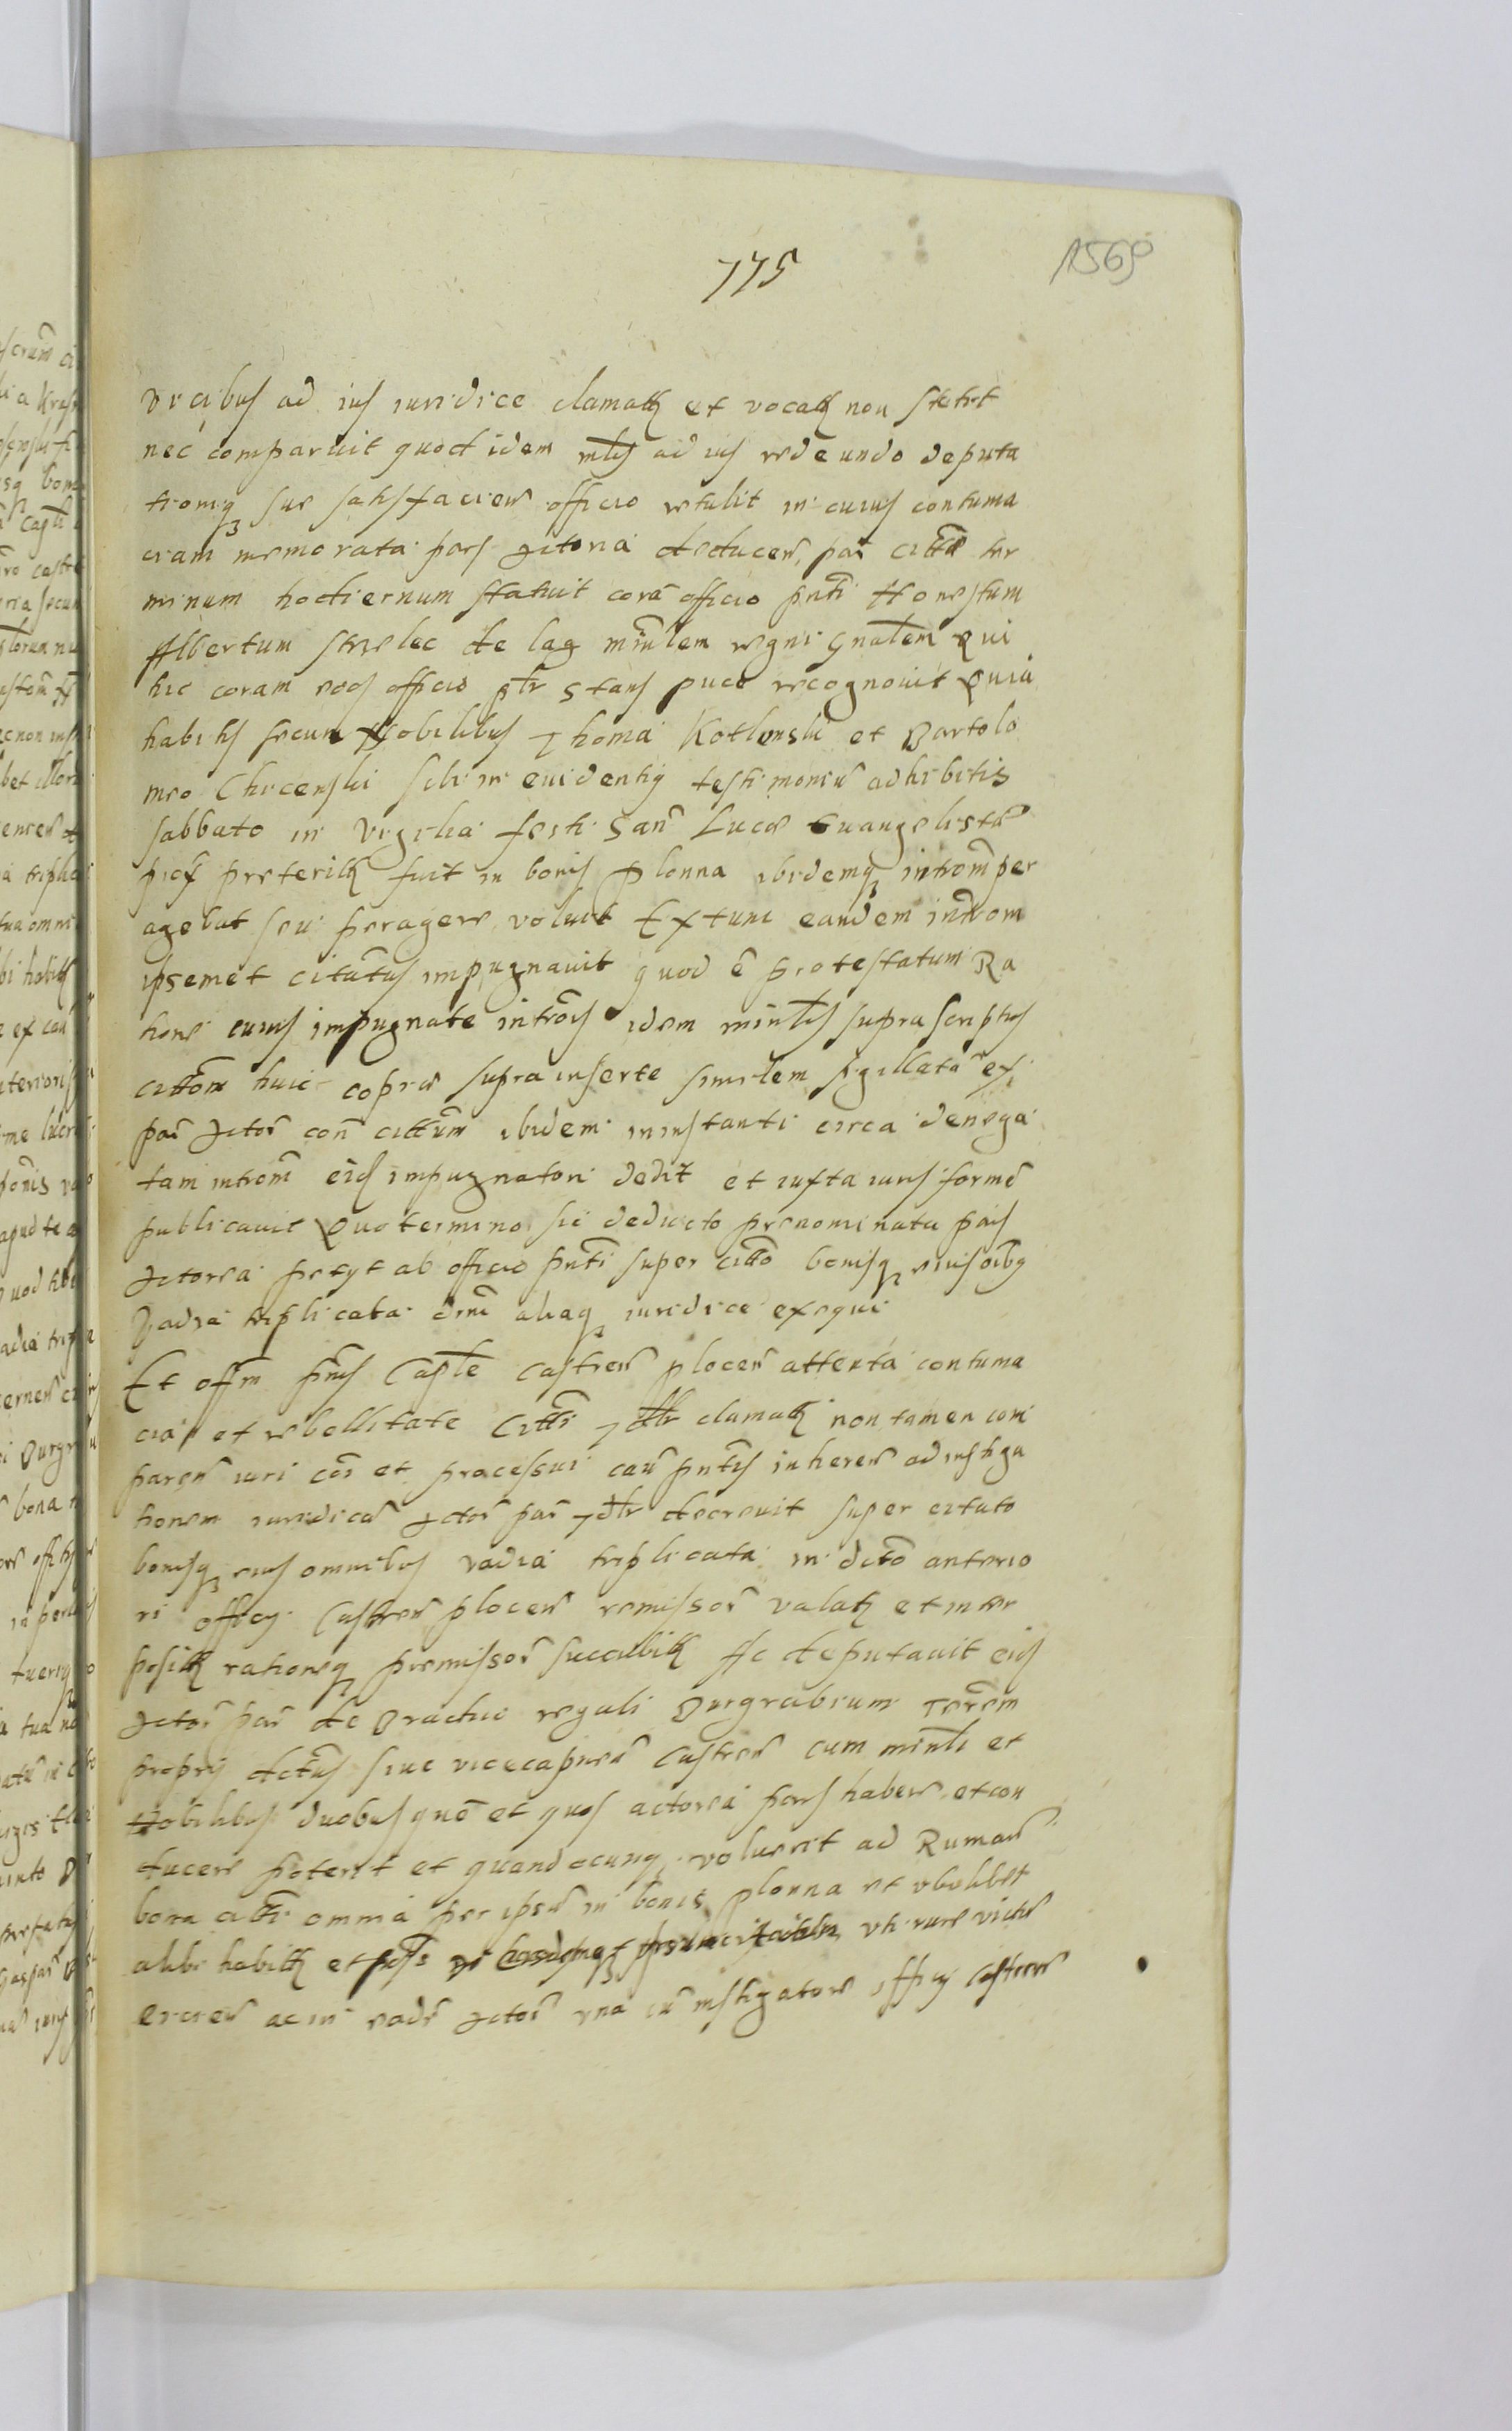 775
1569
vicibus ad ius iuridice clamatus et vocatus non stetit
nec comparuit quod idem ad ius redeundo deputa
tioniq sue satisfacien officio retulit in cuius contuma
ciam memorata pars Actorea deducen par citta ter
minum hodiernum statuit cora officio pnti Honestum
Albertum strzelec de lag minlem regni gnalem Qui
hic coram eod officio ptr stans puce recognovit Quia
habitis secum Nobilibus Thoma Kotlinski et Bartolo
meo Chicenski sibi in evidentiq testimoniu adhibitis
sabbato in vigilia festi San Luce Evangeliste
prox preteritt fuit in bonis plonna ibidemq introm per
agebat seu peragere voluit Extunc eandem introm
ipsemet citatus impugnavit quod e protestatum Ra
tione cuius impugnate introis idem minlis suprascriptus
cittom huic copie supra inserte similem sigillata ex
par Actor con cittum ibidem in instanti circa denega
tam introm eid impugnatori dedit et iuxta iuris forme
publicavit Quo termino sic deducto prenominata pars
Actorea petyt ab officio pnti super citto bonisq eius oibq
Vadia triplicata aliaq iuridice exequi
Et offm pns Caple Castren plocen attenta contuma
cia et rebellitate Citti clamatt non tamen com
paren iuri coi et processui cau pntis inheren ad instiga
tionem iuridica Actor par decrevit super citato
bonisq eius omnibus vadia triplicata in anterio
ri officy Castren plocen remissor valatt et inter
positt rationeq premissor succubitt Ac deputavit eid
Actor par de Brachio regali Burgrabium
propry sive vicecapneu Castren cum minli et
Nobilibus duobus que et quos actorea pars habere et con
ducere poterit et quandocunq voluerit ad Ruman
bona citti omnia per ipsu in bonis plonna et ubilibet
alibi habitt et uti iure victu
ac in eade Actor una cu instigatore officy castren